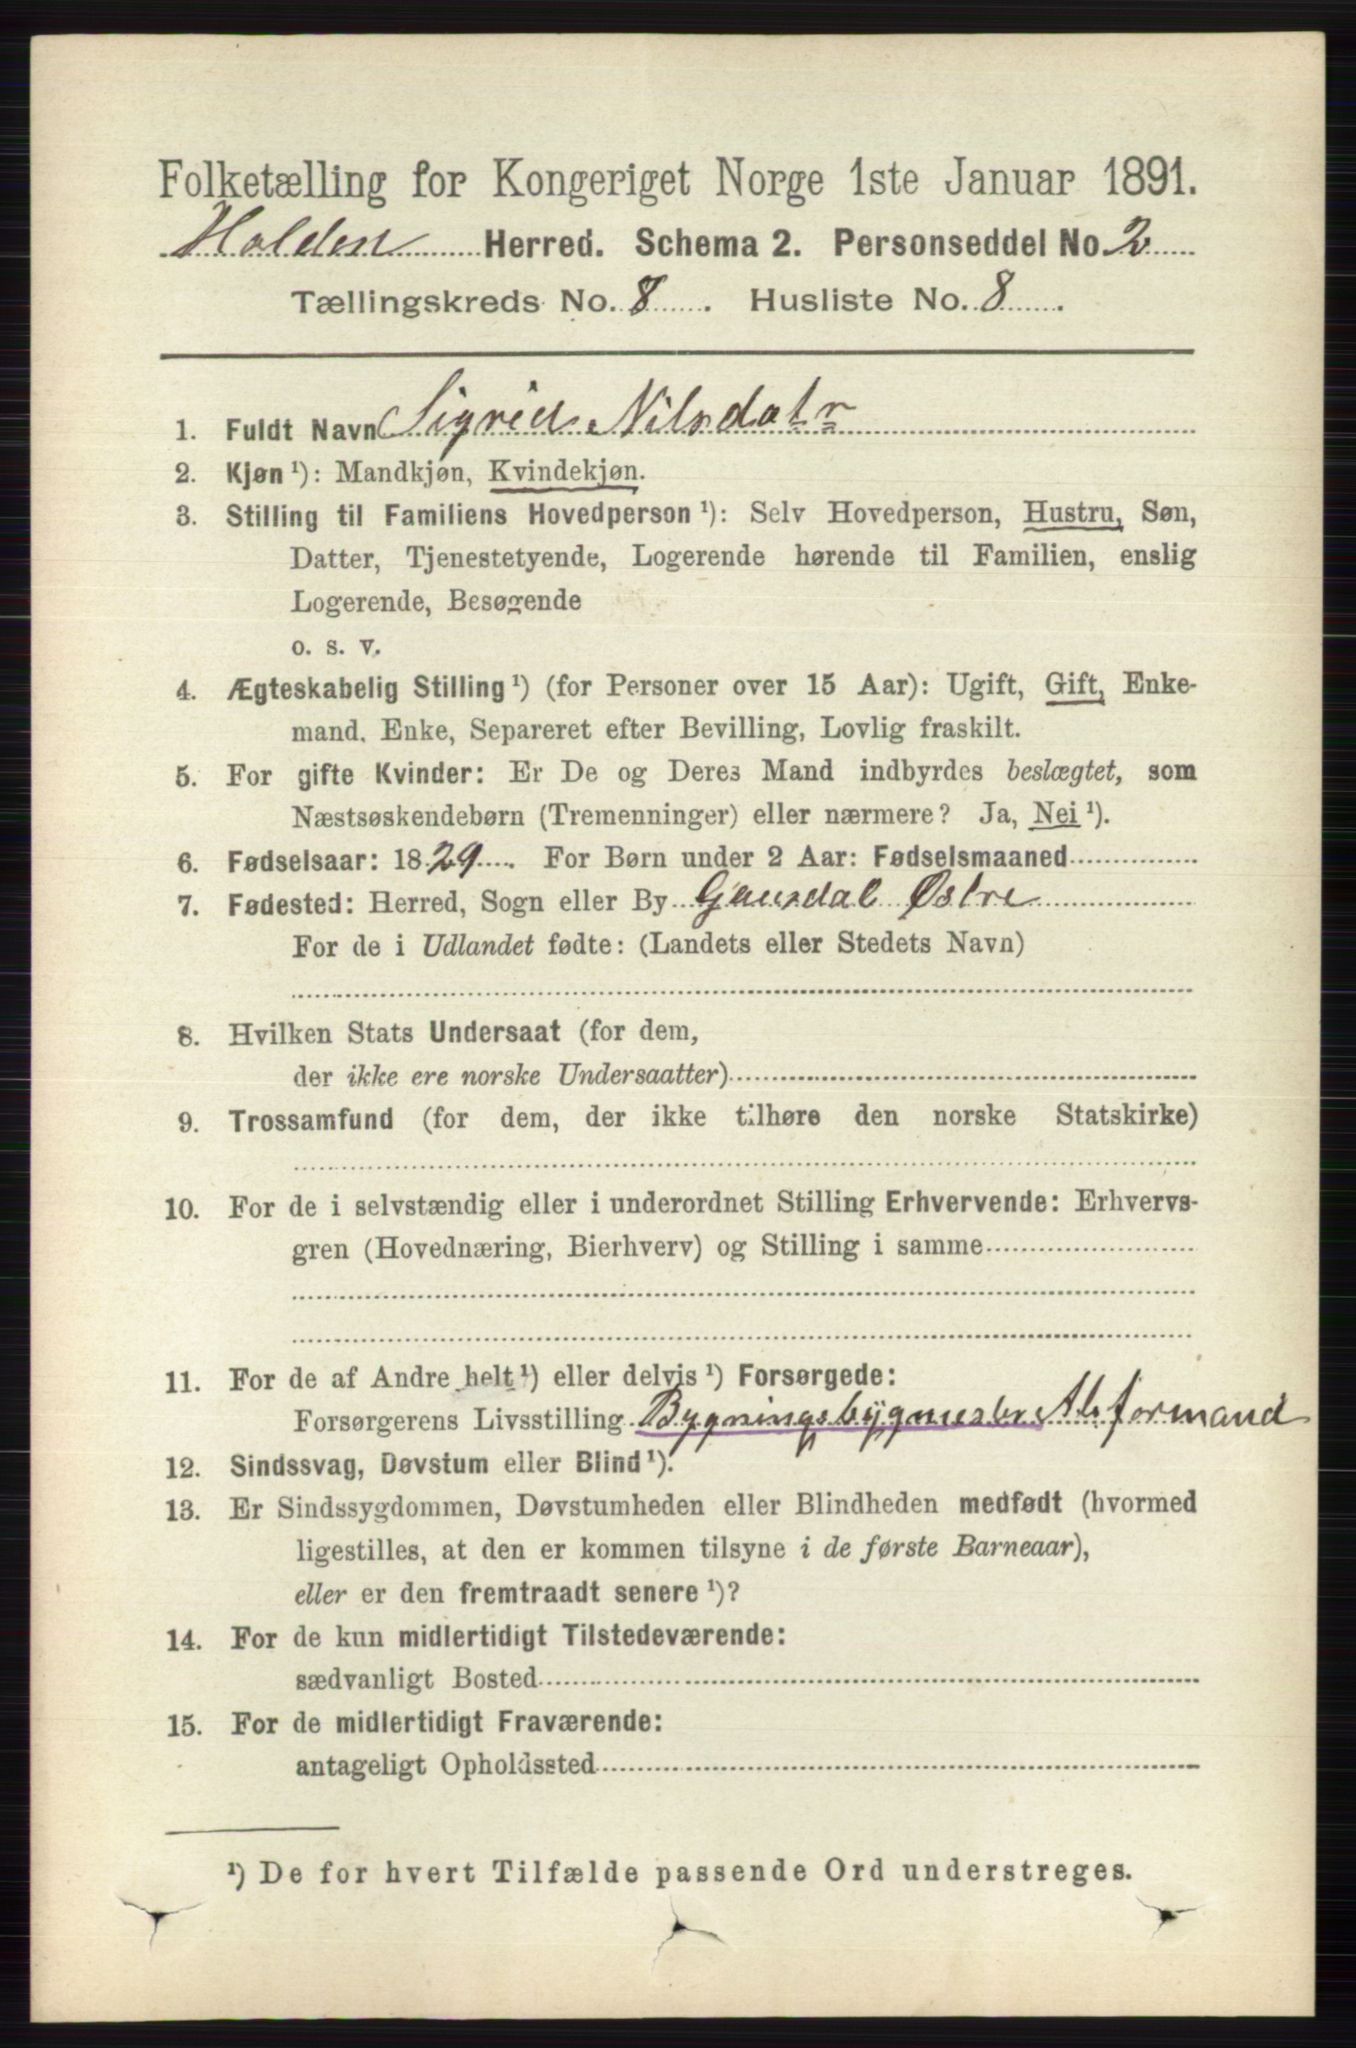 Folketælling for Kongeriget Norge 1ste Januar 1891.
Holden Herred. Schema 2. Personseddel No. 2
Tællingskreds No. 8. Husliste No. 8.
1. Fuldt Navn Sigrid Nilsdatr
2. Kjøn ¹): Mandkjøn, Kvindekjøn.
3. Stilling til Familiens Hovedperson ¹): Selv Hovedperson, Hustru, Søn,
Datter, Tjenestetyende, Logerende hørende til Familien, enslig
Logerende, Besøgende
o. s. v.
4. Ægteskabelig Stilling ¹) (for Personer over 15 Aar): Ugift, Gift, Enke-
mand, Enke, Separeret efter Bevilling, Lovlig fraskilt.
5. For gifte Kvinder: Er De og Deres Mand indbyrdes beslægtet, som
Næstsøskendebørn (Tremenninger) eller nærmere? Ja, Nei ¹).
6. Fødselsaar: 1829. For Børn under 2 Aar: Fødselsmaaned
7. Fødested: Herred, Sogn eller By Gausdal Østre
For de i Udlandet fødte: (Landets eller Stedets Navn)
8. Hvilken Stats Undersaat (for dem,
der ikke ere norske Undersaatter)
9. Trossamfund (for dem, der ikke tilhøre den norske Statskirke)
10. For de i selvstændig eller i underordnet Stilling Erhvervende: Erhvervs-
gren (Hovednæring, Bierhverv) og Stilling i samme
11. For de af Andre helt ¹) eller delvis ¹) Forsørgede:
Forsørgerens Livsstilling Bygningsbygmester Arb formand
12. Sindssvag, Døvstum eller Blind ¹).
13. Er Sindssygdommen, Døvstumheden eller Blindheden medfødt (hvormed
ligestilles, at den er kommen tilsyne i de første Barneaar),
eller er den fremtraadt senere ¹)?
14. For de kun midlertidigt Tilstedeværende:
sædvanligt Bosted
15. For de midlertidigt Fraværende:
antageligt Opholdssted
¹) De for hvert Tilfælde passende Ord understreges.